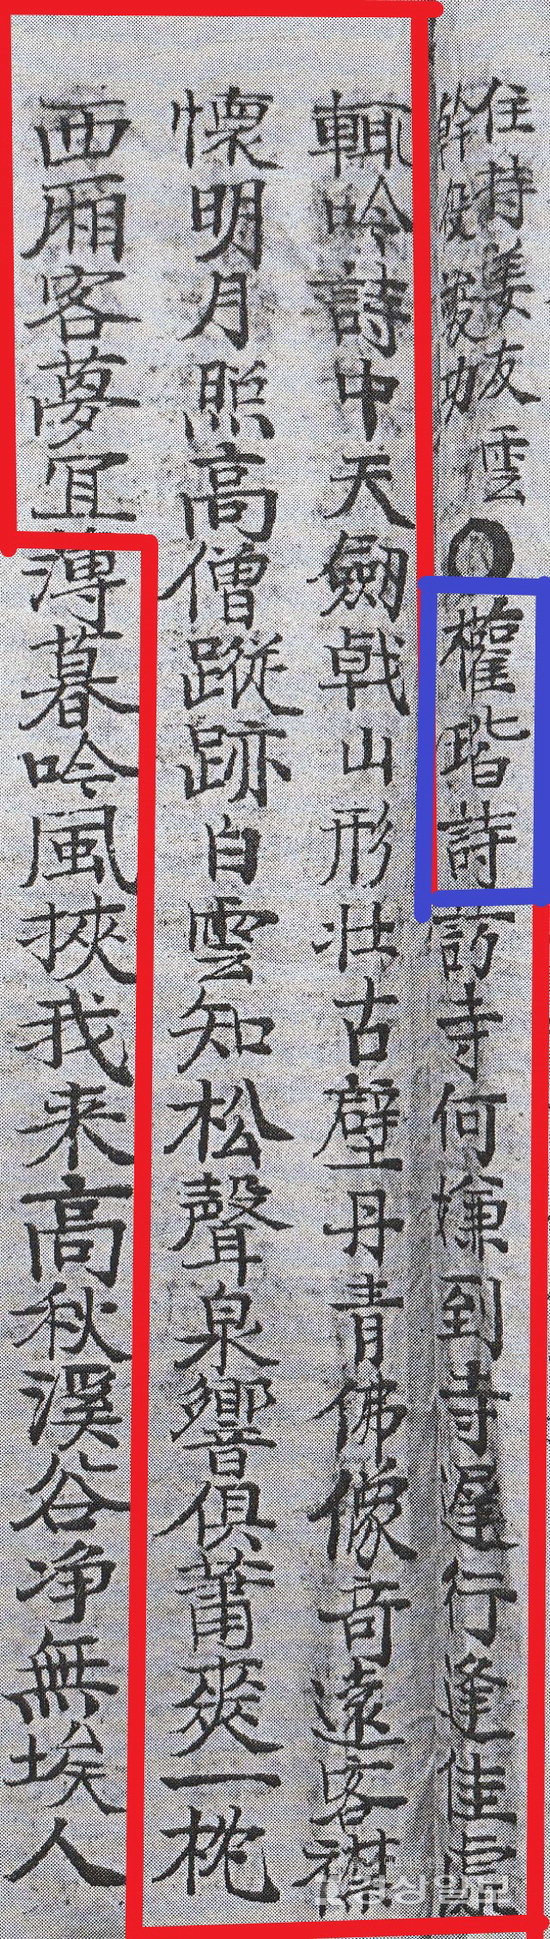 住持姜友雲
幹役
○權瑎詩訪寺何嫌到寺遲行逢佳處
輒吟詩中天劒戟山形壯古壁丹青佛像奇遠客襟
懷明月照高僧蹤跡白雲知松聲泉響俱蕭爽一枕
西廂客夢宜薄暮吟風挾我来高秋溪谷净無埃人
경상일보